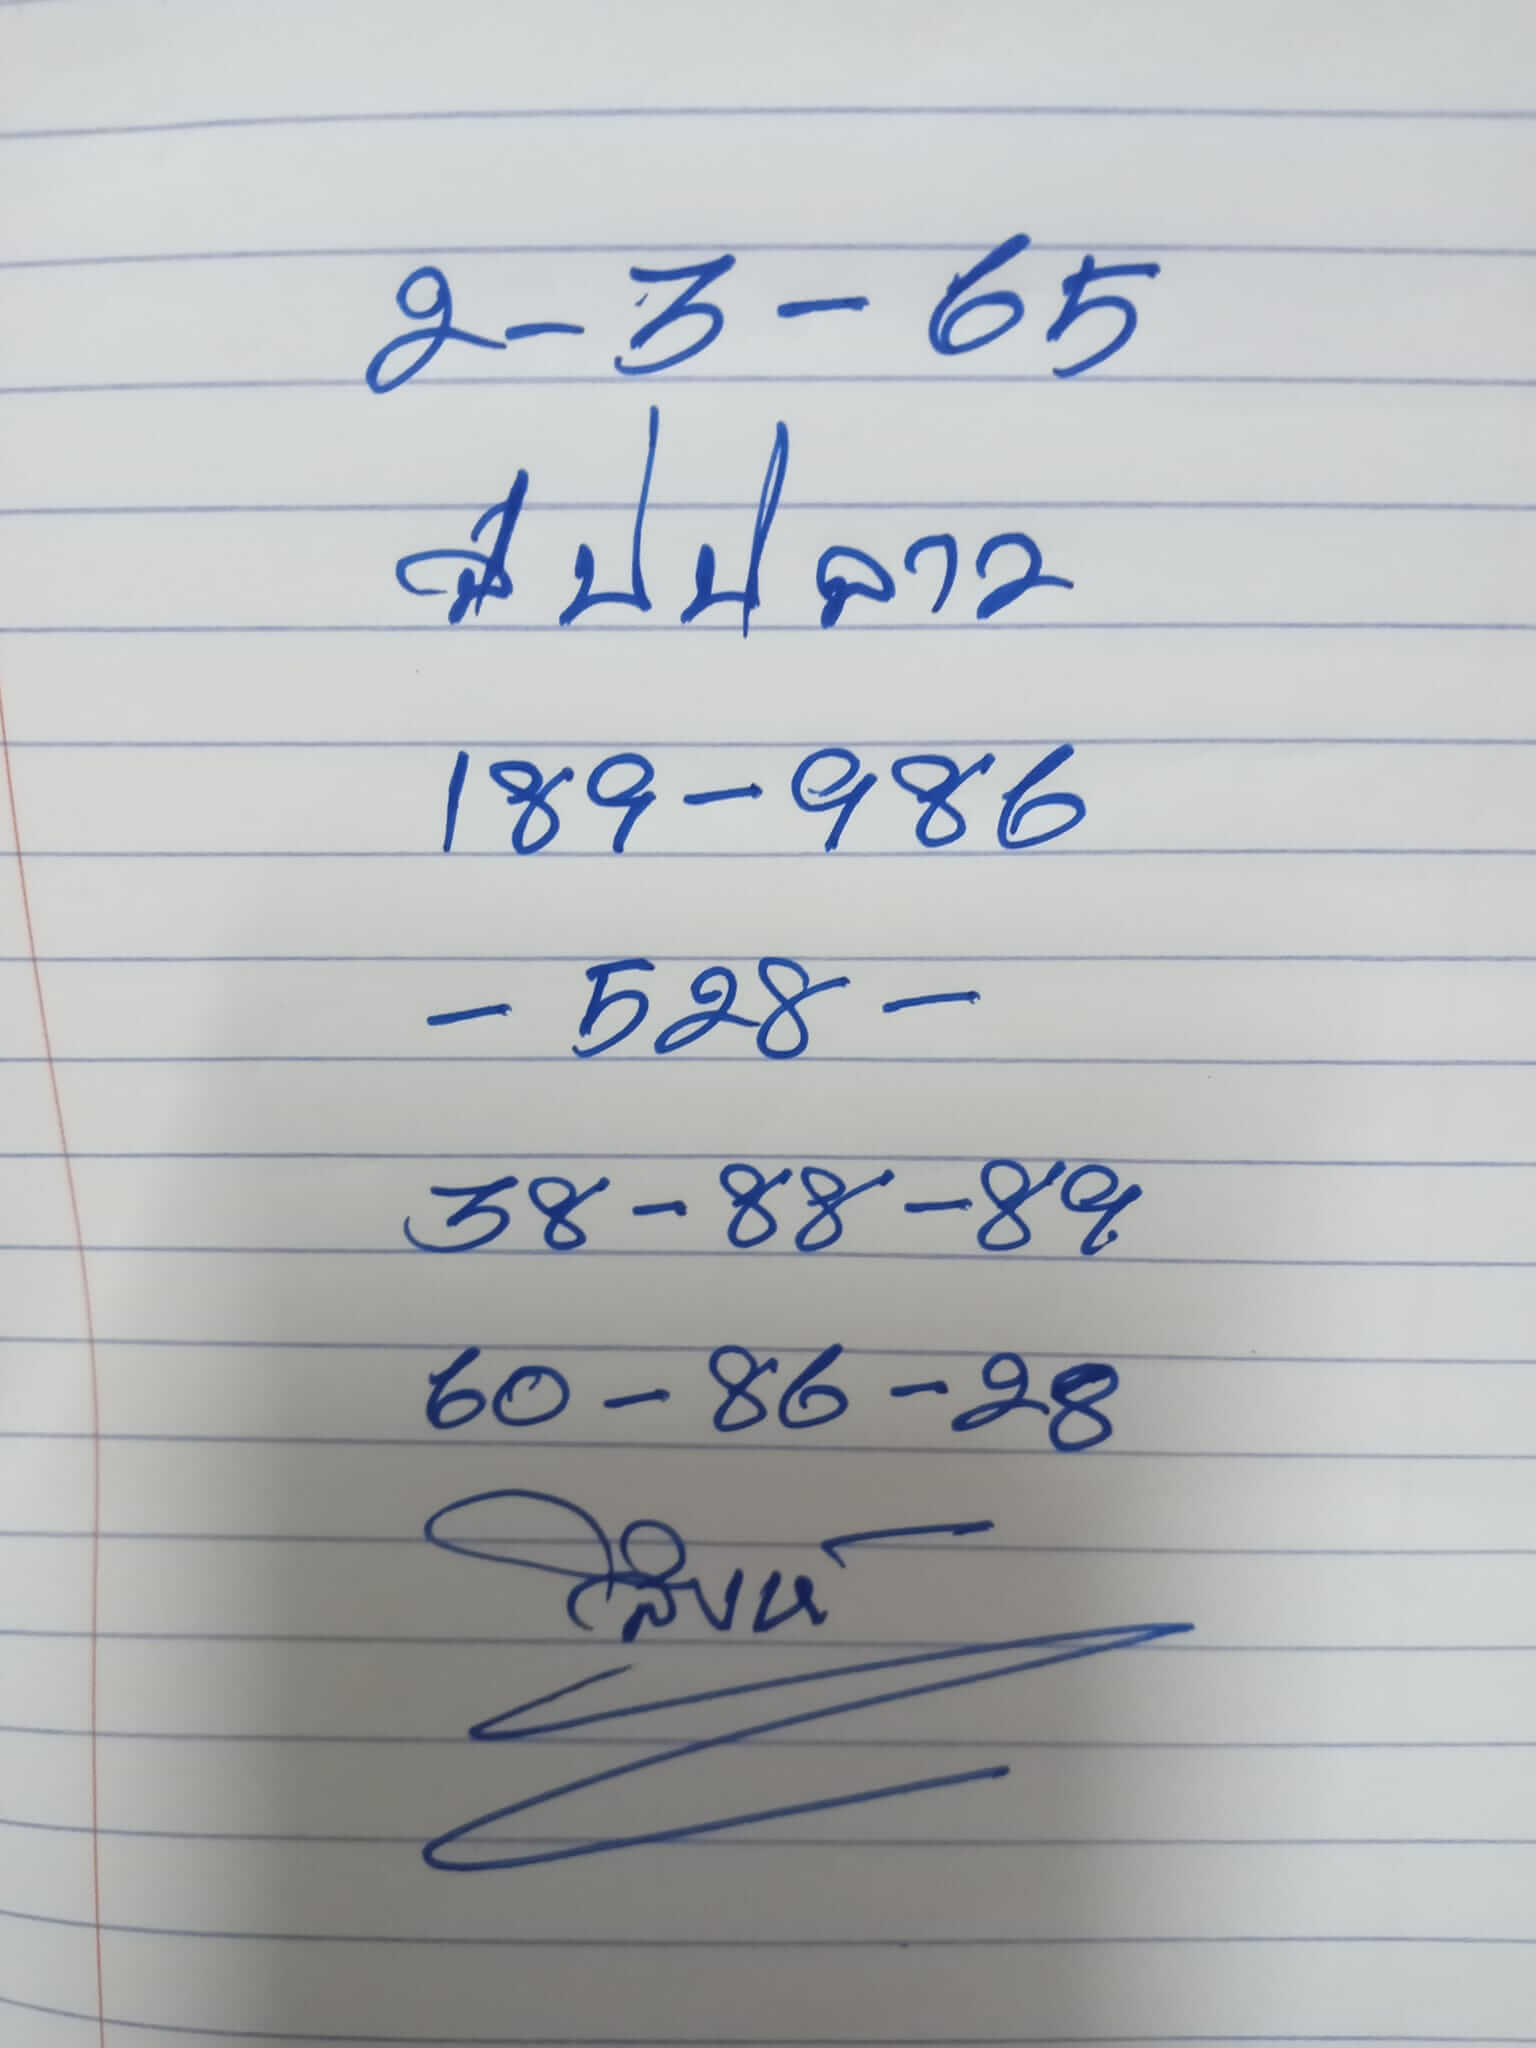 2-3-65
สปป ลาว
189-986
- 528 -
38-88-89
60-86-28
สิงห์